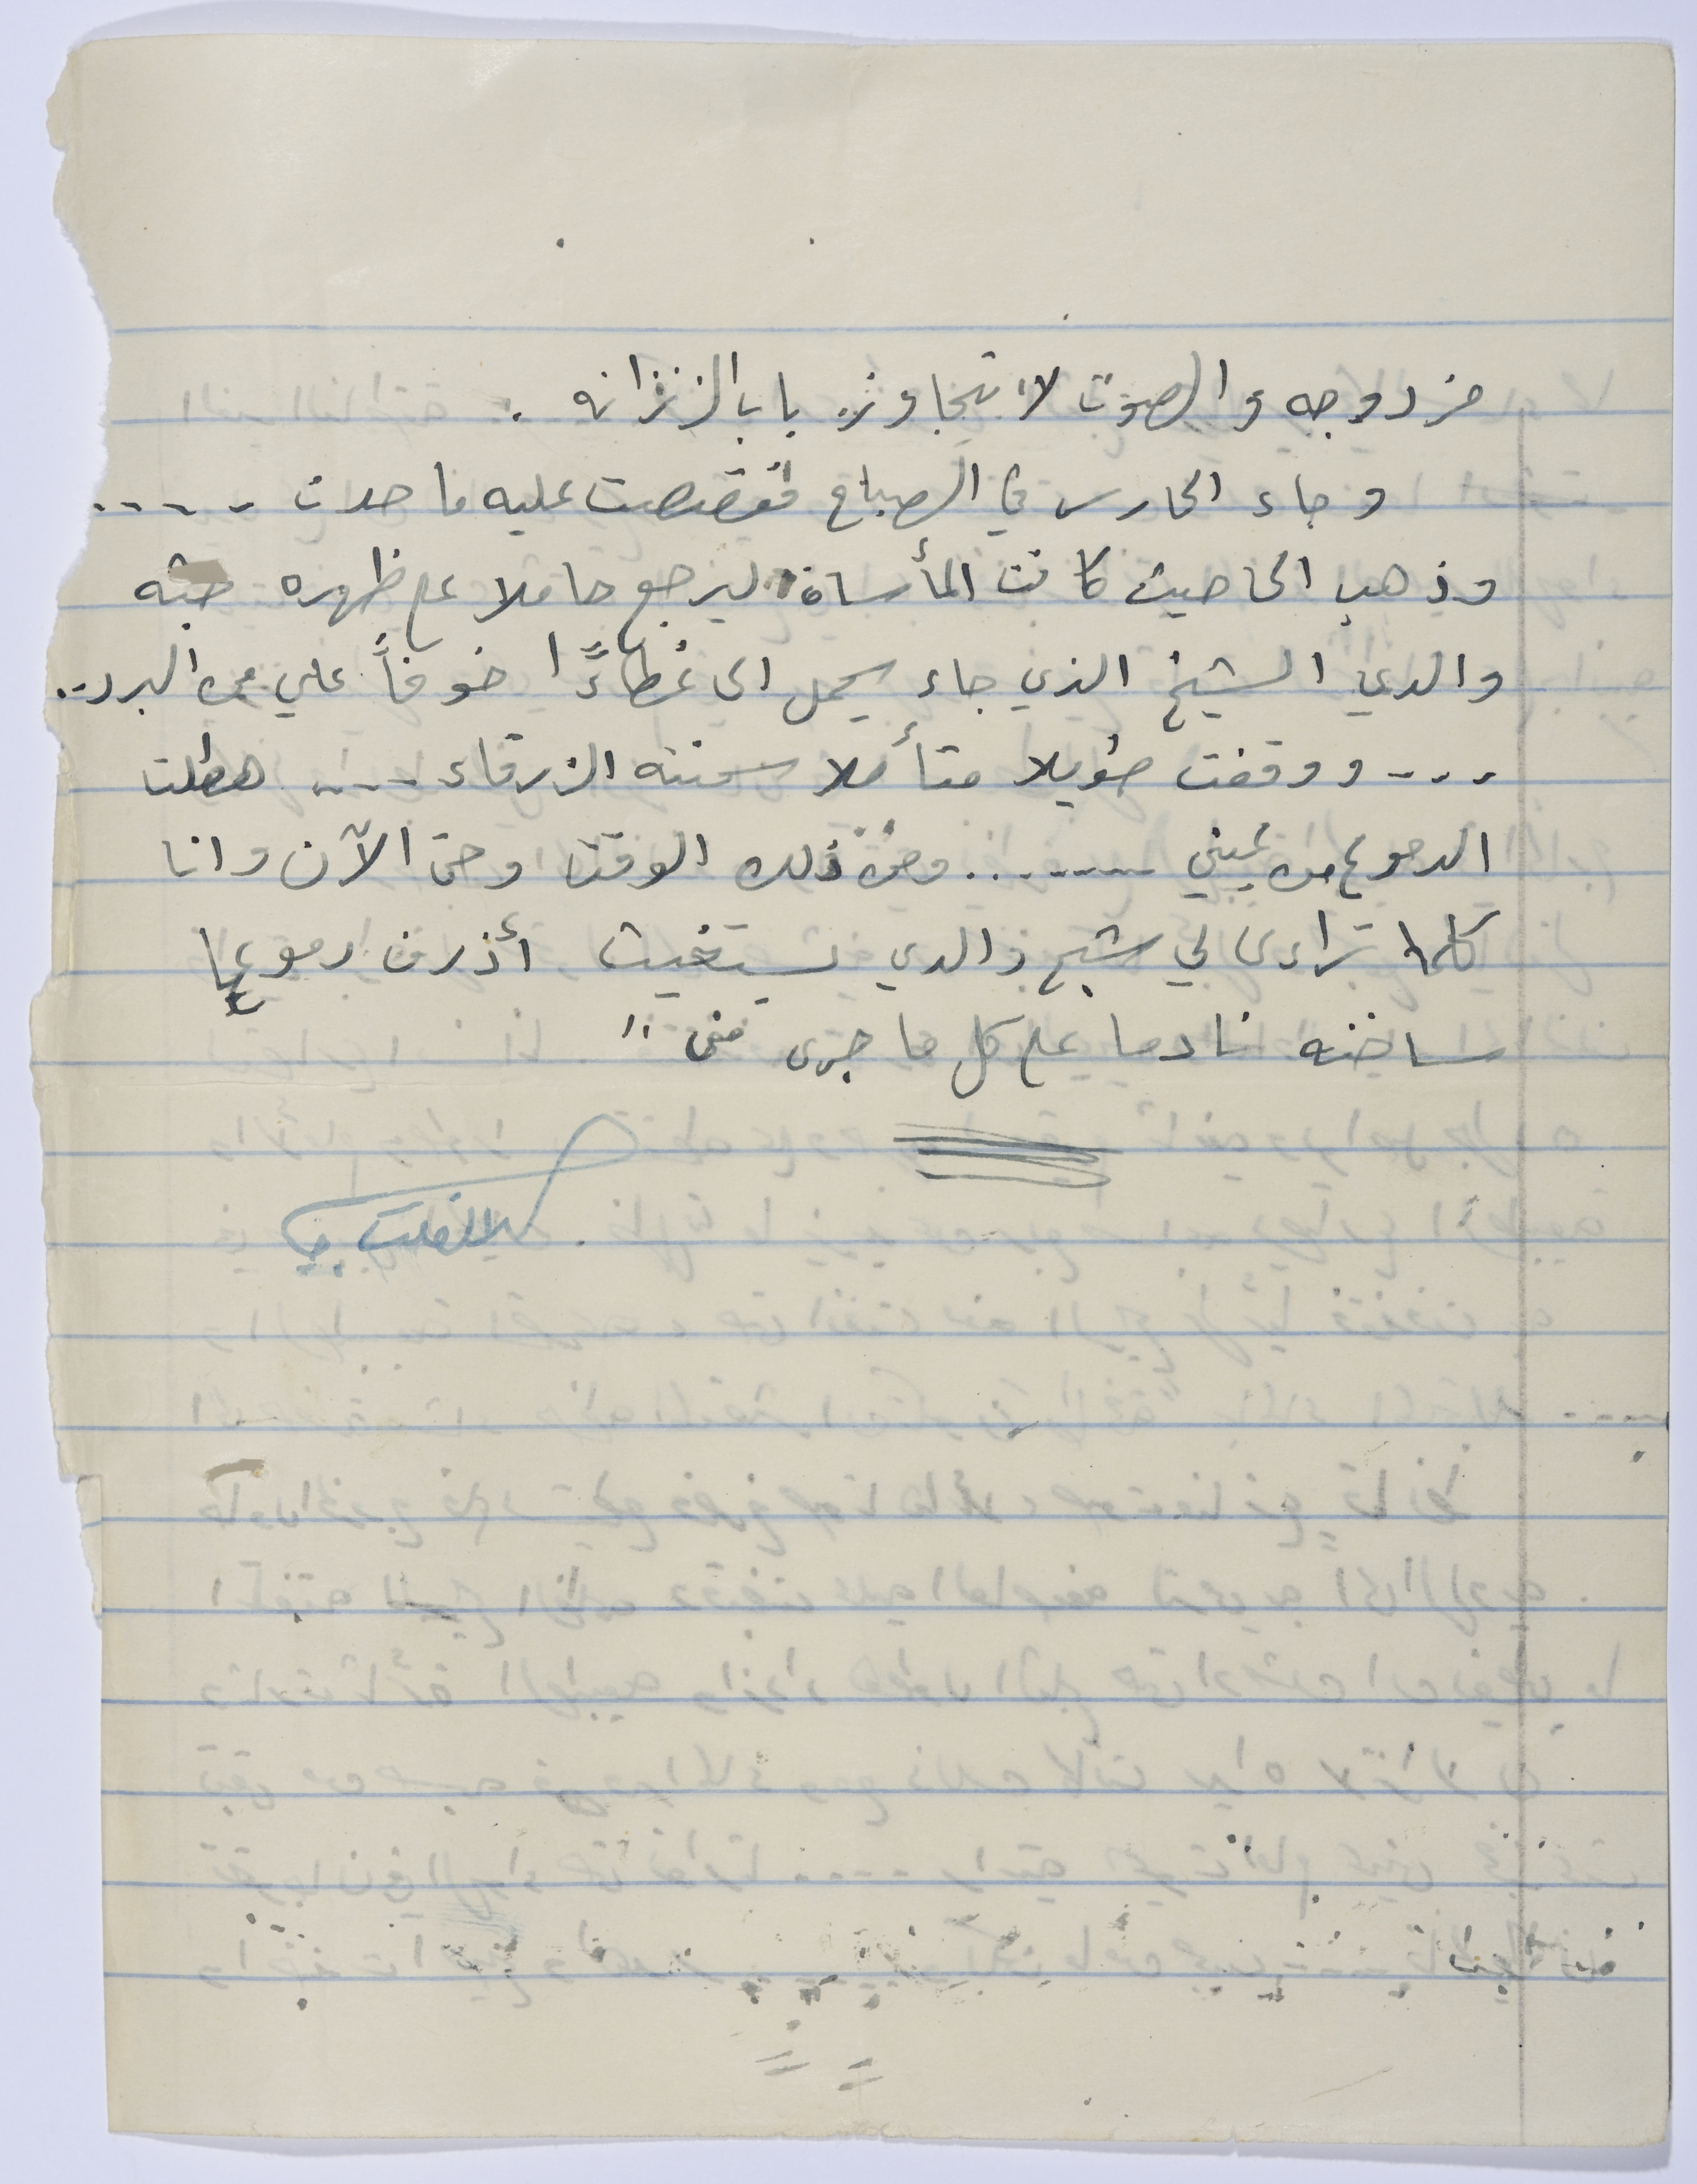 مزدوجه والصوت لا يتجاوز باب الزنزانه .
وجاء الحارس في الصباح فقصصت عليه ما حدث - - - - .
وذهب الى حيث كانت المأساة ليرجع حاملا على ظهره جثه
والدي الشيخ الذي جاء يحمل الى غطاءً ا خوفاً علي من البرد ..
- - - ووقفت طويلا متأملا سحنته الزرقاء - - - - هطلت
الدموع من عيني - - - - - - - ومن ذلك الوقت وحتى الآن وانا
كلما تراءى لي شبح والدي يستغيث أذرف دموعا
ساخنه نادما على كل ما جرى مني "